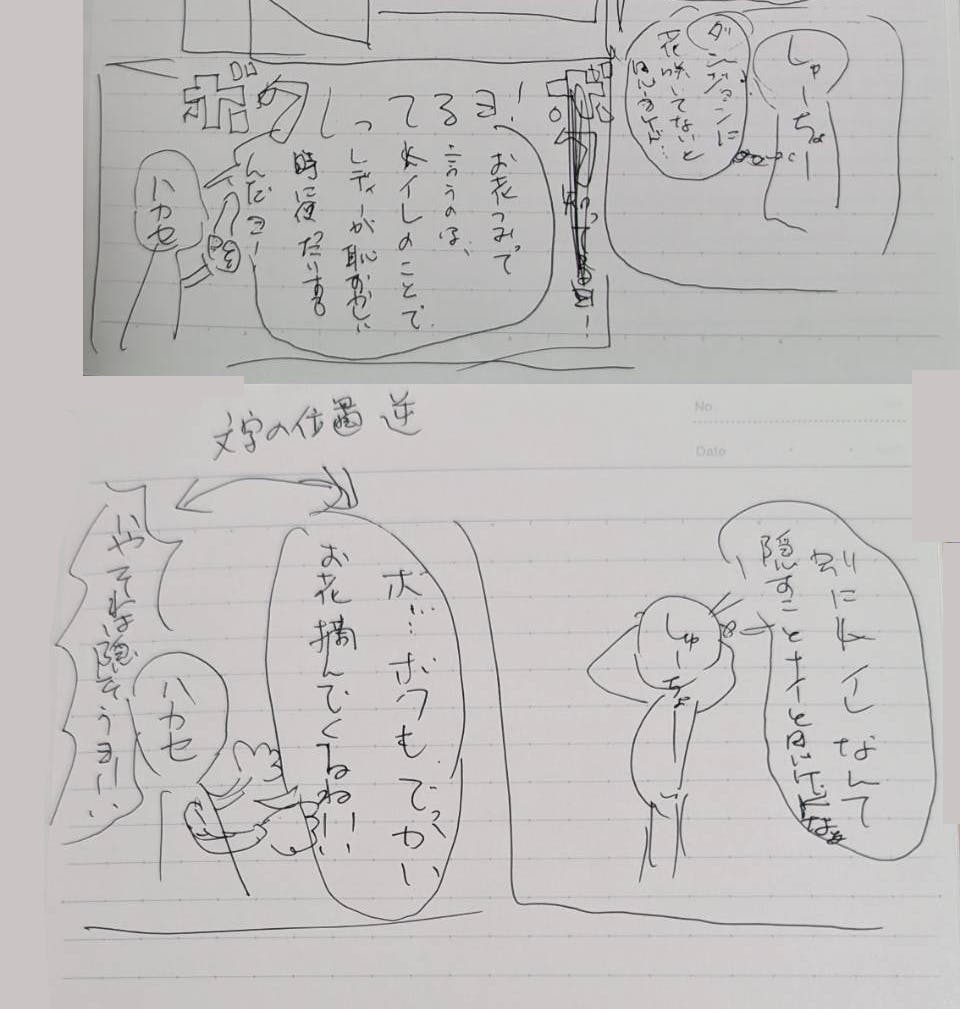 しゅーちょー
ダンジョンに
花咲いてないと
思うけど…
しってるヨ!
お花つみって
言うのは、
オイレのことで
レディーが恥ずかしい
時に使ったりする
んだヨー
ハカセ
文字の位置 逆
No.
Date
別にオイレなんて
隠すことナイと思いけどなぁ
しゅーちょー
ボ…ボクもでっかい
お花摘んでくるね!!
ハカセ
いやそれは隠そうヨ!!